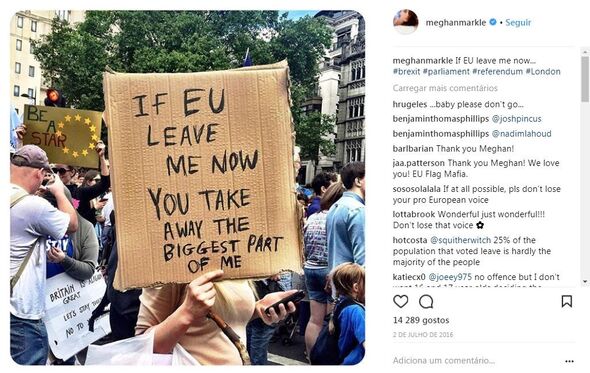 BE A
STAR
IF EU
LEAVE
ME NOW
YOU TAKE
AWAY THE
BIGGEST PART
OF ME
BRITAIN IS
GREAT
LETS STAY
NO TO
meghanmarkle • Seguir
meghanmarkle If EU leave me now...
#brexit #parliament #referendum #London
Carregar mais comentários
hrugeles ...baby please don't go...
benjaminthomasphillips @joshpincus
benjaminthomasphillips @nadimlahoud
barlbarian Thank you Meghan!
jaa.patterson Thank you Meghan! We love
you! EU Flag Mafia.
sososolalala If at all possible, pls don't lose
your pro European voice
lottabrook Wonderful just wonderful!!!
Don't lose that voice ✿
hotcosta @squitherwitch 25% of the
population that voted leave is hardly the
majority of the people
katiecx0 @joeey975 no offence but I don't
14 289 gostos
2 DE JULHO DE 2016
Adiciona um comentário...